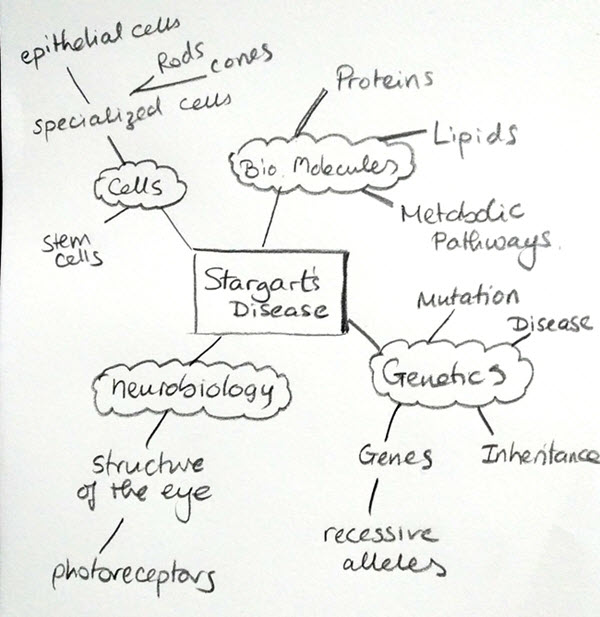 epithelial cells
Rods
cones
specialized cells
Cells
stem
cells
Proteins
Lipids
Bio. Molecules
Metabolic
Pathways.
Stargart's
Disease
Mutation
Disease
Genetics
Genes
Inheritance
recessive
alleles
neurobiology
structure
of the eye
photoreceptors